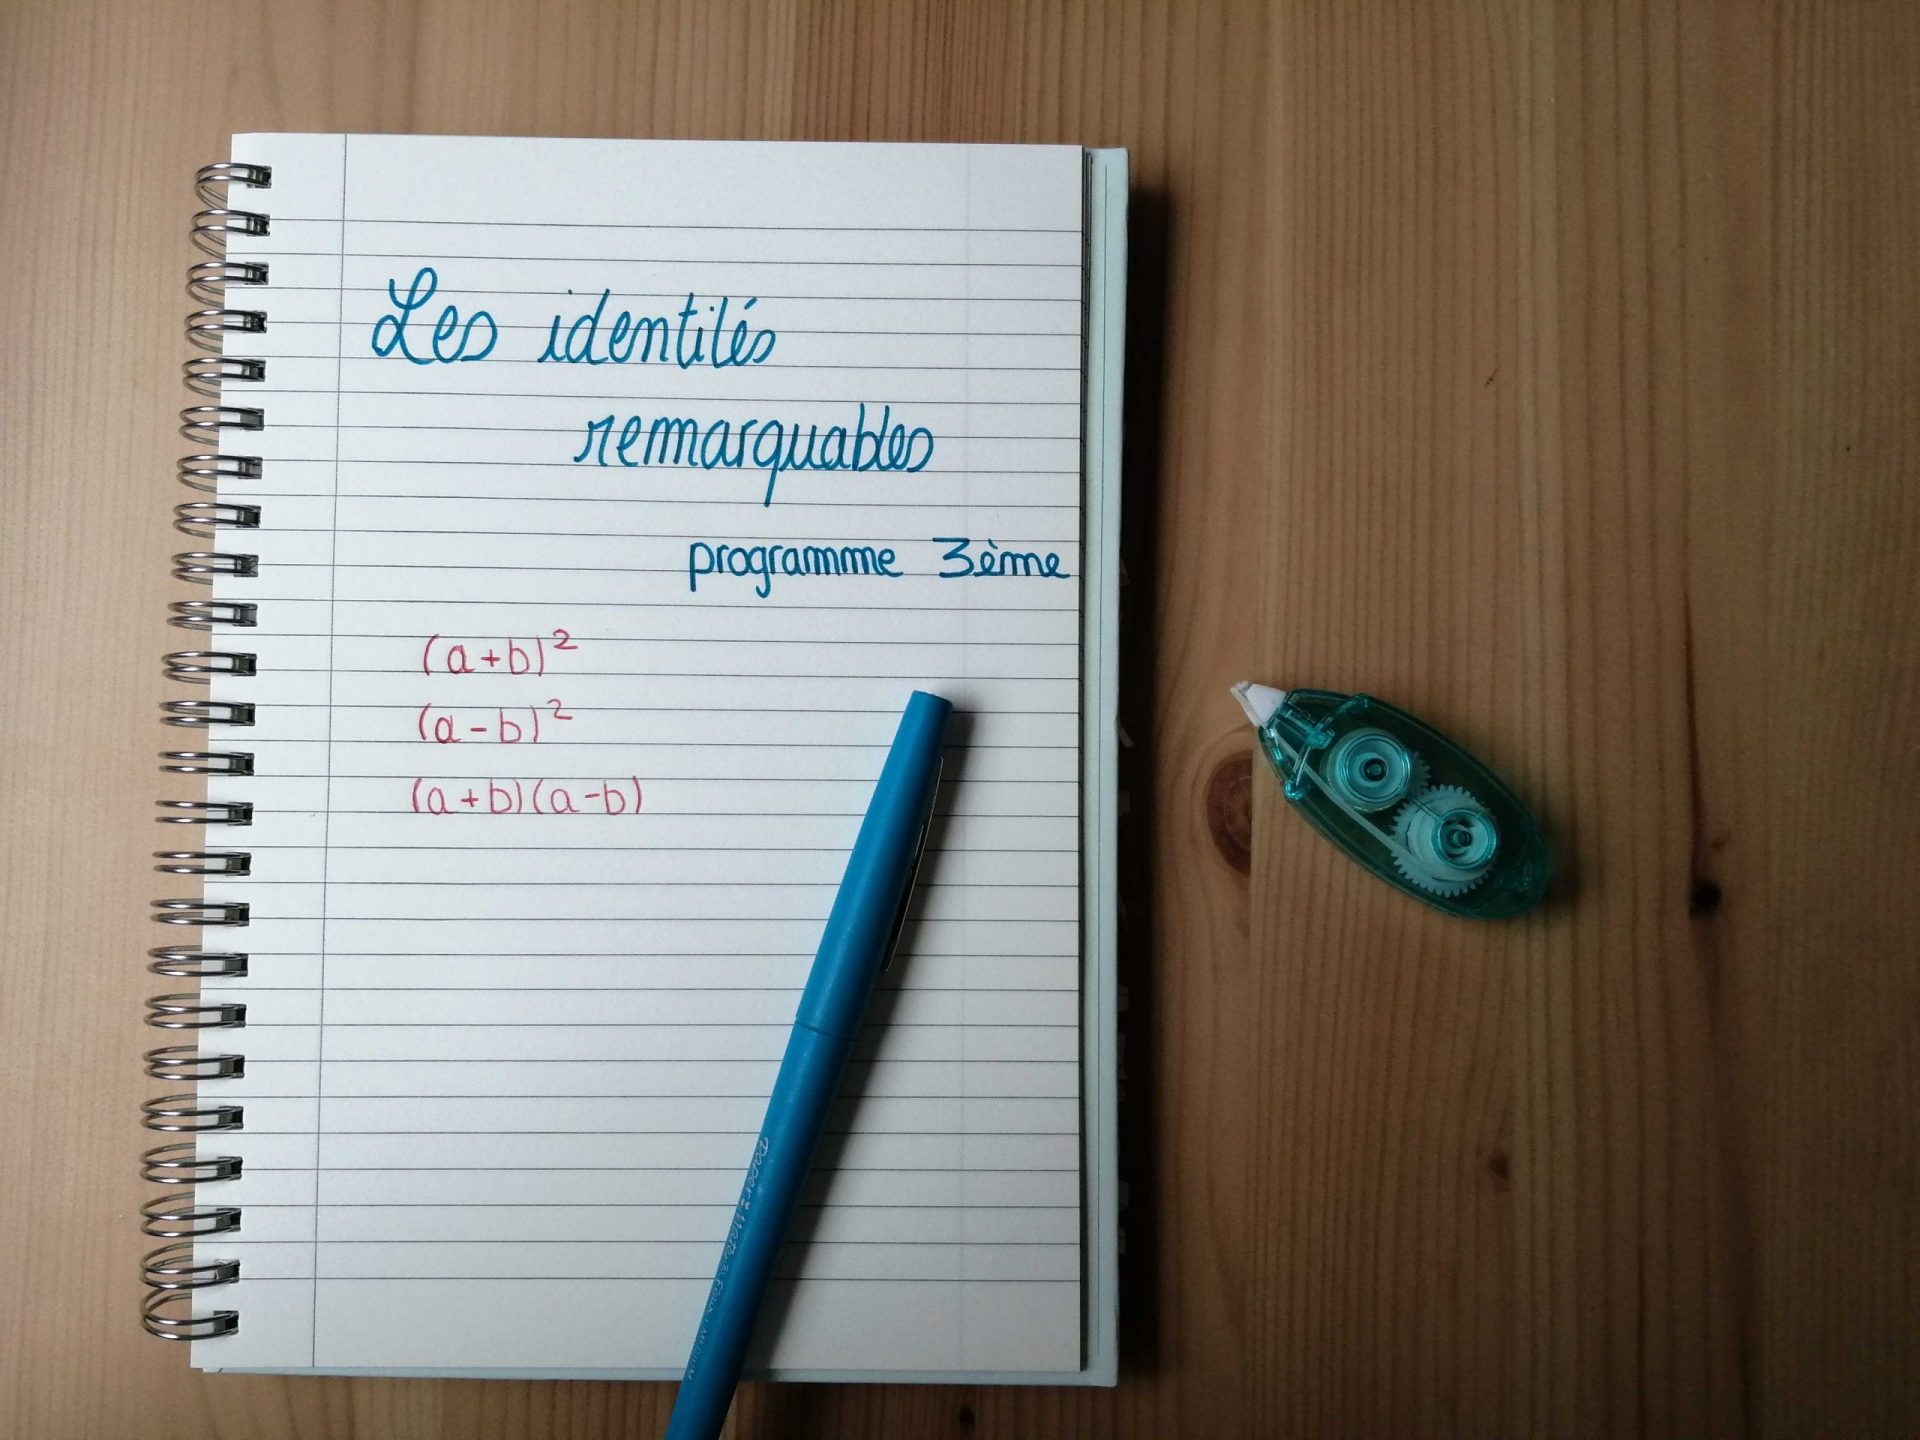 Les identités
remarquables
programme 3ème
(a+b)²
(a-b)²
(a+b)(a-b)
Paper Mate